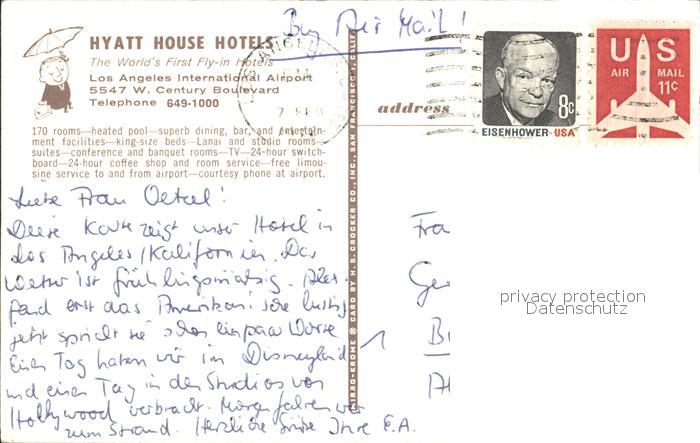 By Air Mail!
HYATT HOUSE HOTELS
The World's First Fly-in Hotels
Los Angeles International Airport
5547 W. Century Boulevard
Telephone 649-1000
170 rooms—heated pool—superb dining, bar, and entertain-
ment facilities—king-size beds—Lanai and studio rooms—
suites—conference and banquet rooms—TV—24-hour switch-
board—24-hour coffee shop and room service—free limou-
sine service to and from airport—courtesy phone at airport.
LOS ANGELES
7 FEB
address
EISENHOWER·USA
8c
US
AIR MAIL
11¢
MIRRO-KROME ® CARD BY H. S. CROCKER CO., INC., SAN FRANCISCO 1, CALIF.
Liebe Frau Oetel!
Diese Karte zeigt unser Hotel in
Los Angeles/Kalifornien. Das
Wetter ist frühlingsmäßig.
fand erst das Amerikanische lustig
jetzt spricht sie schon ein paar Worte
Einen Tag haben wir im Disneyland
und einen Tag in den Studios von
Hollywood verbracht. Morgen fahren wir
zum Strand. Herzliche Grüße Ihre E.A.
Fra
Ge
1 B
privacy protection
Datenschutz